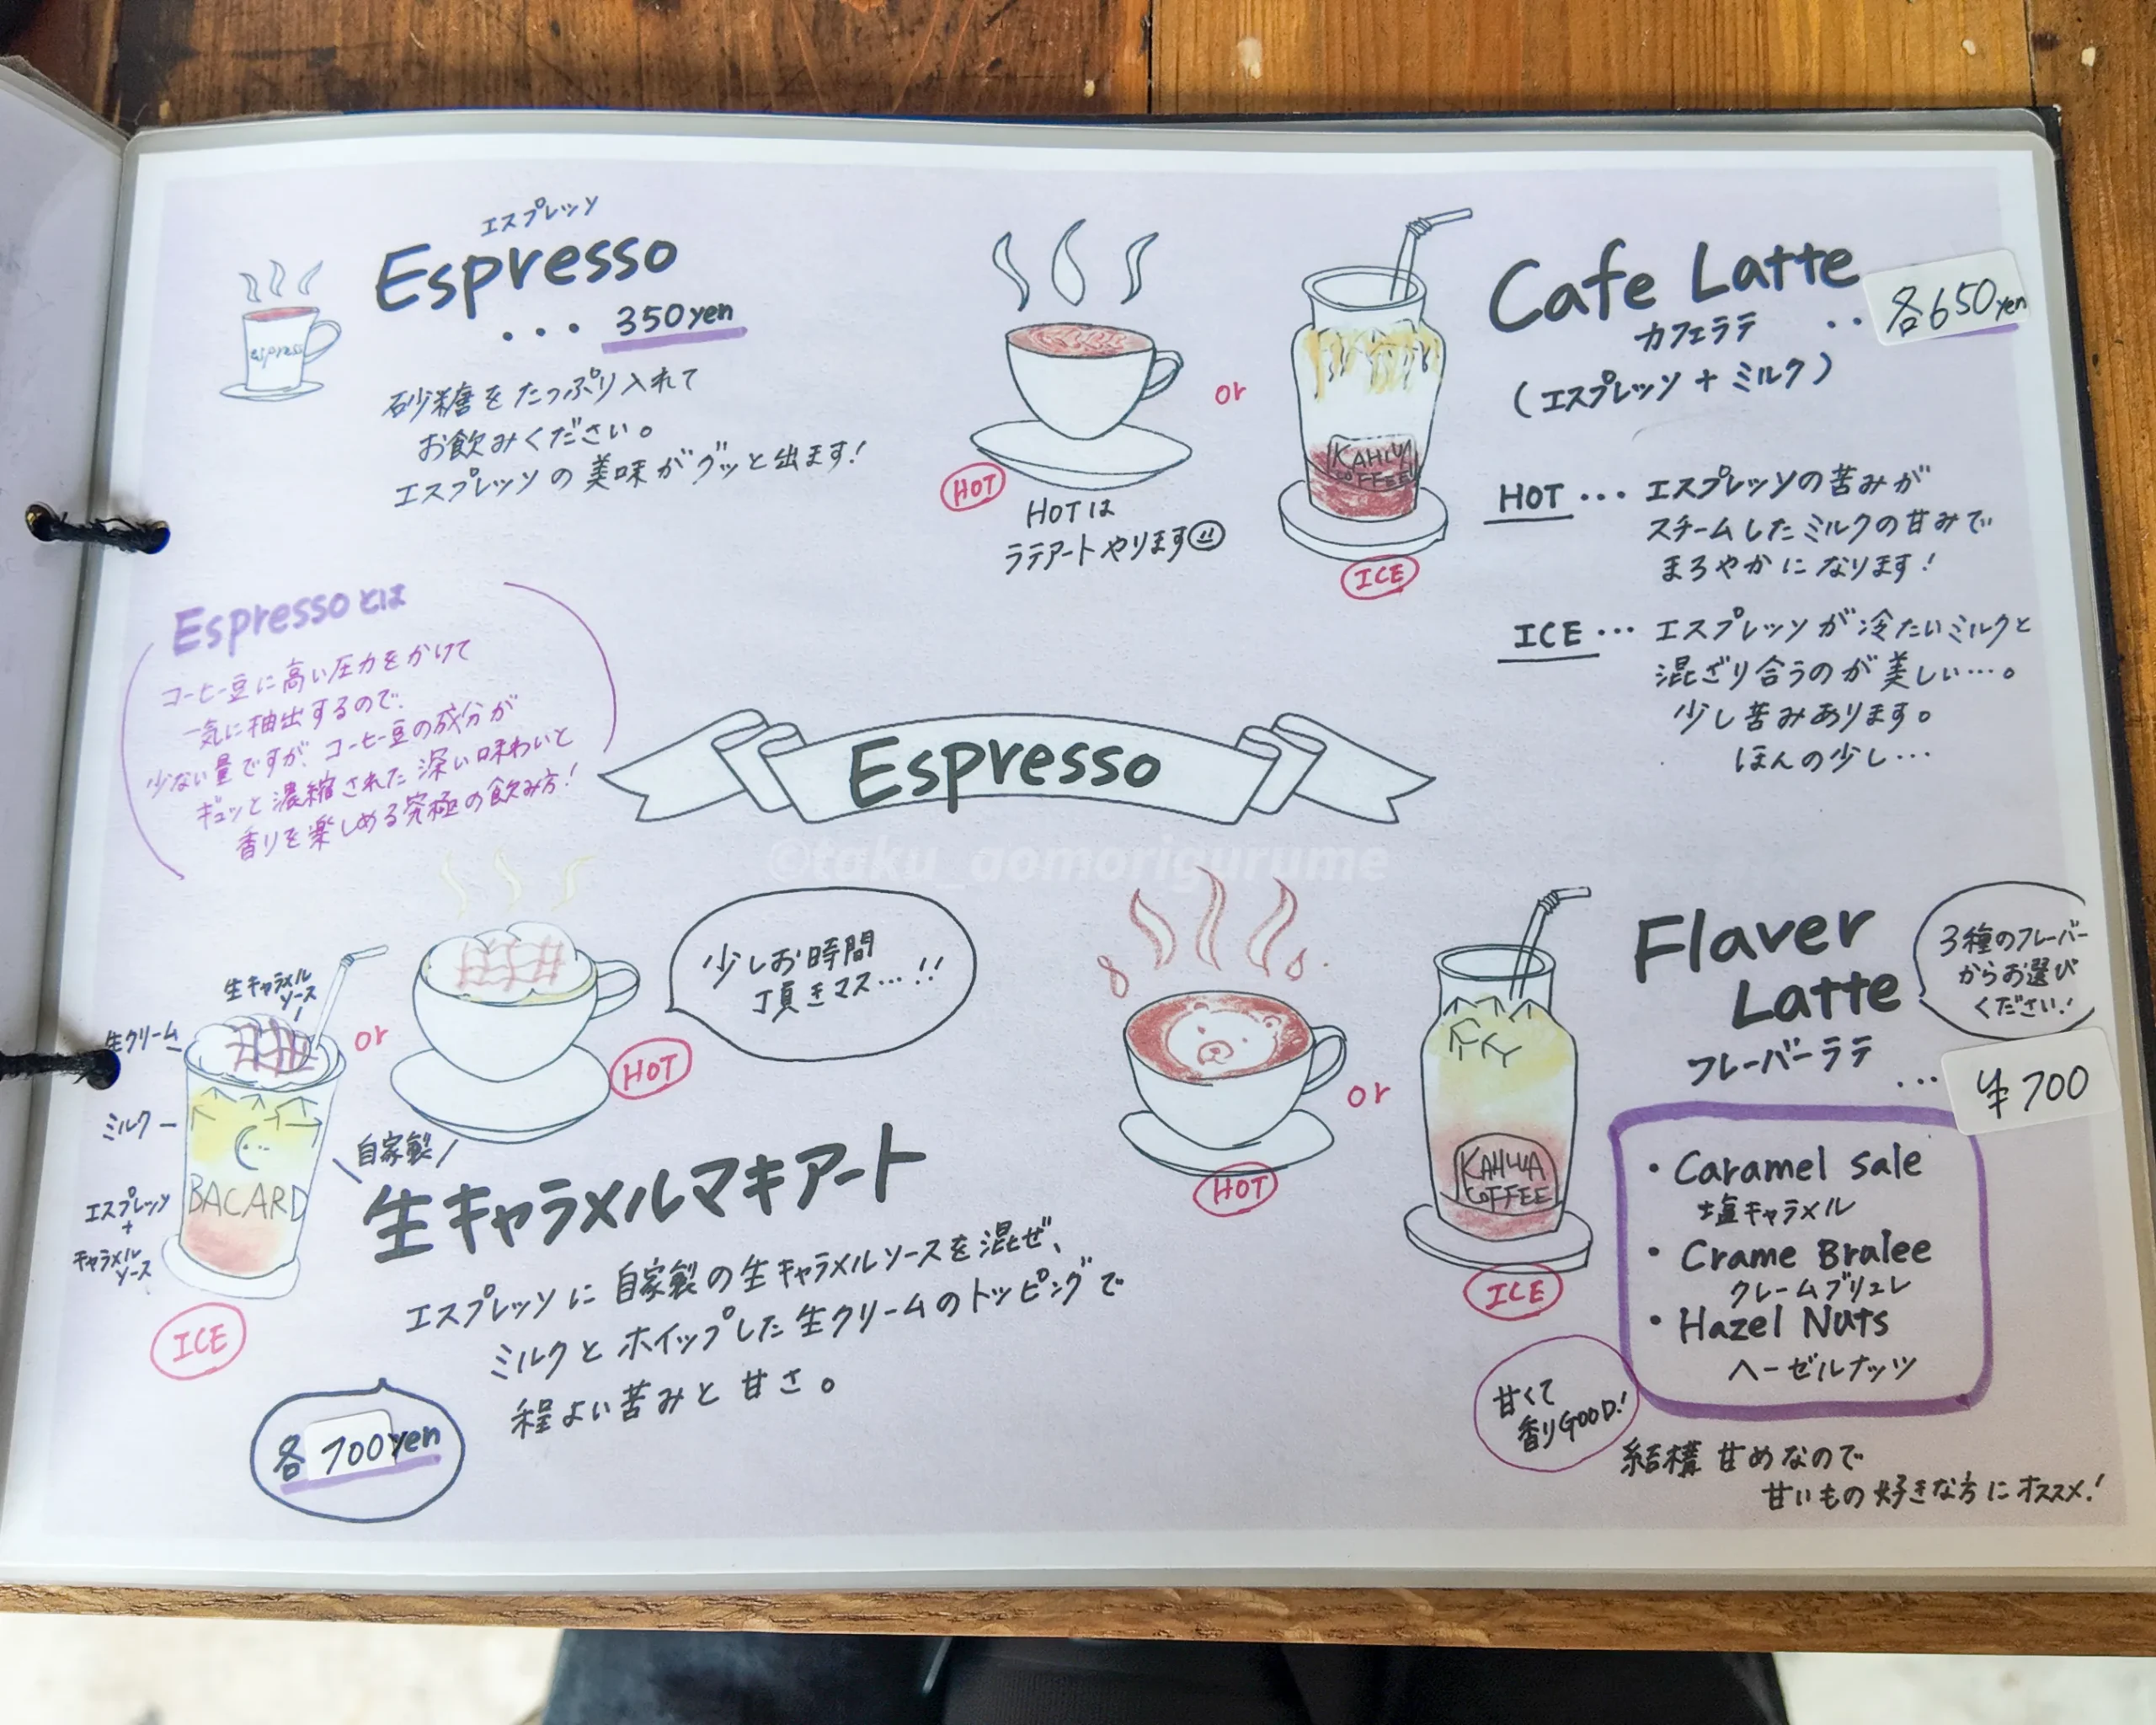 エスプレッソ
Espresso
・・・ 350yen
espresso
砂糖をたっぷり入れて
お飲みください。
エスプレッソの美味がグッと出ます!
or
HOT
HOTは
ラテアートやります
KAHWA
COFFEE
ICE
Cafe Latte
カフェラテ
・・ 各650yen
(エスプレッソ + ミルク)
HOT … エスプレッソの苦みが
スチームしたミルクの甘みで
まろやかになります!
ICE … エスプレッソが冷たいミルクと
混ざり合うのが美しい…。
少し苦みあります。
ほんの少し…
Espressoとは
コーヒー豆に高い圧力をかけて
一気に抽出するので、
少ない量ですが、コーヒー豆の成分が
ギュッと濃縮された深い味わいと
香りを楽しめる究極の飲み方!
Espresso
©taku_aomorigurume
生キャラメル
ソース
生クリーム
ミルク
エスプレッソ
+
キャラメル
ソース
BACARD
ICE
or
HOT
少しお時間
頂きマス…!!
自家製
生キャラメルマキアート
エスプレッソに自家製の生キャラメルソースを混ぜ、
ミルクとホイップした生クリームのトッピングで
程よい苦みと甘さ。
各700yen
HOT
or
KAHWA
COFFEE
ICE
Flaver
Latte
フレーバーラテ
… ¥700
3種のフレーバー
からお選び
ください!
・Caramel sale
塩キャラメル
・Crame Bralee
クレームブリュレ
・Hazel Nuts
ヘーゼルナッツ
甘くて
香りGOOD!
結構甘めなので
甘いもの好きな方にオススメ!